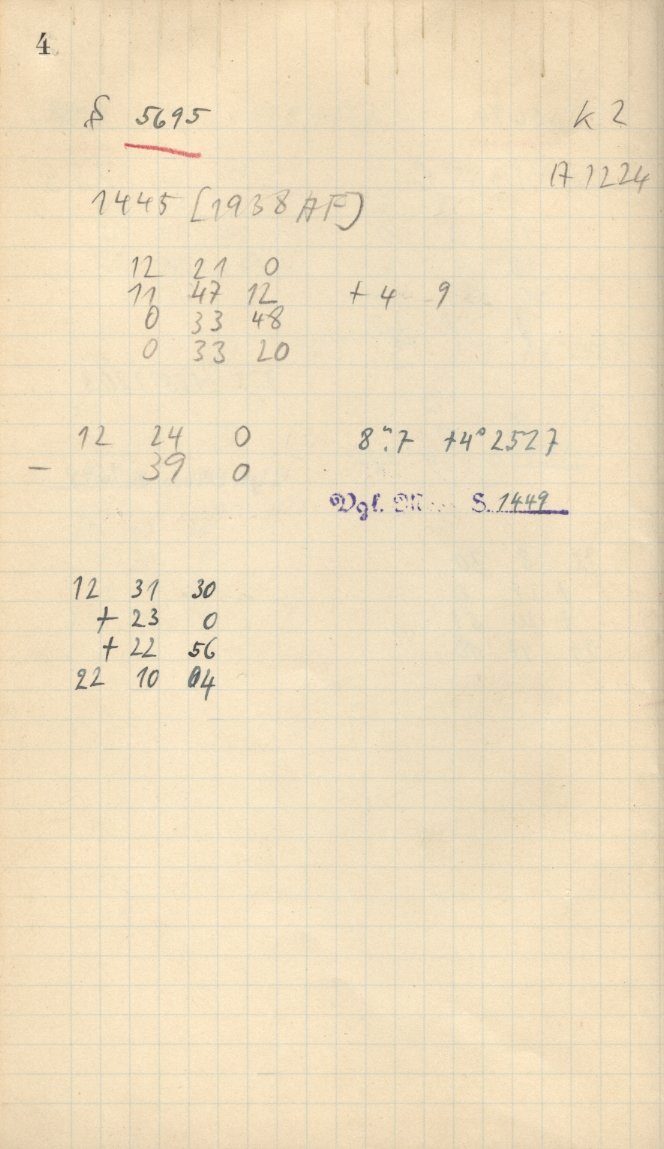 4
5695
K 2
A 1224
1445 [1938 AF]
12 21 0
11 47 12 + 4 9
0 33 48
0 33 20
12 24 0 8 7 +4° 2527
− 39 0
Vgl. S. 1449
12 31 30
+ 23 0
+ 22 56
22 10 04